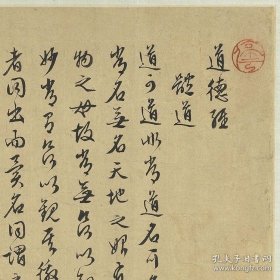 道德经
體道
道可道非常道名可
常名無名天地之始有
物之母故常無欲以觀
妙常有欲以觀其徼
者同出而異名同謂之
孔夫子旧书网